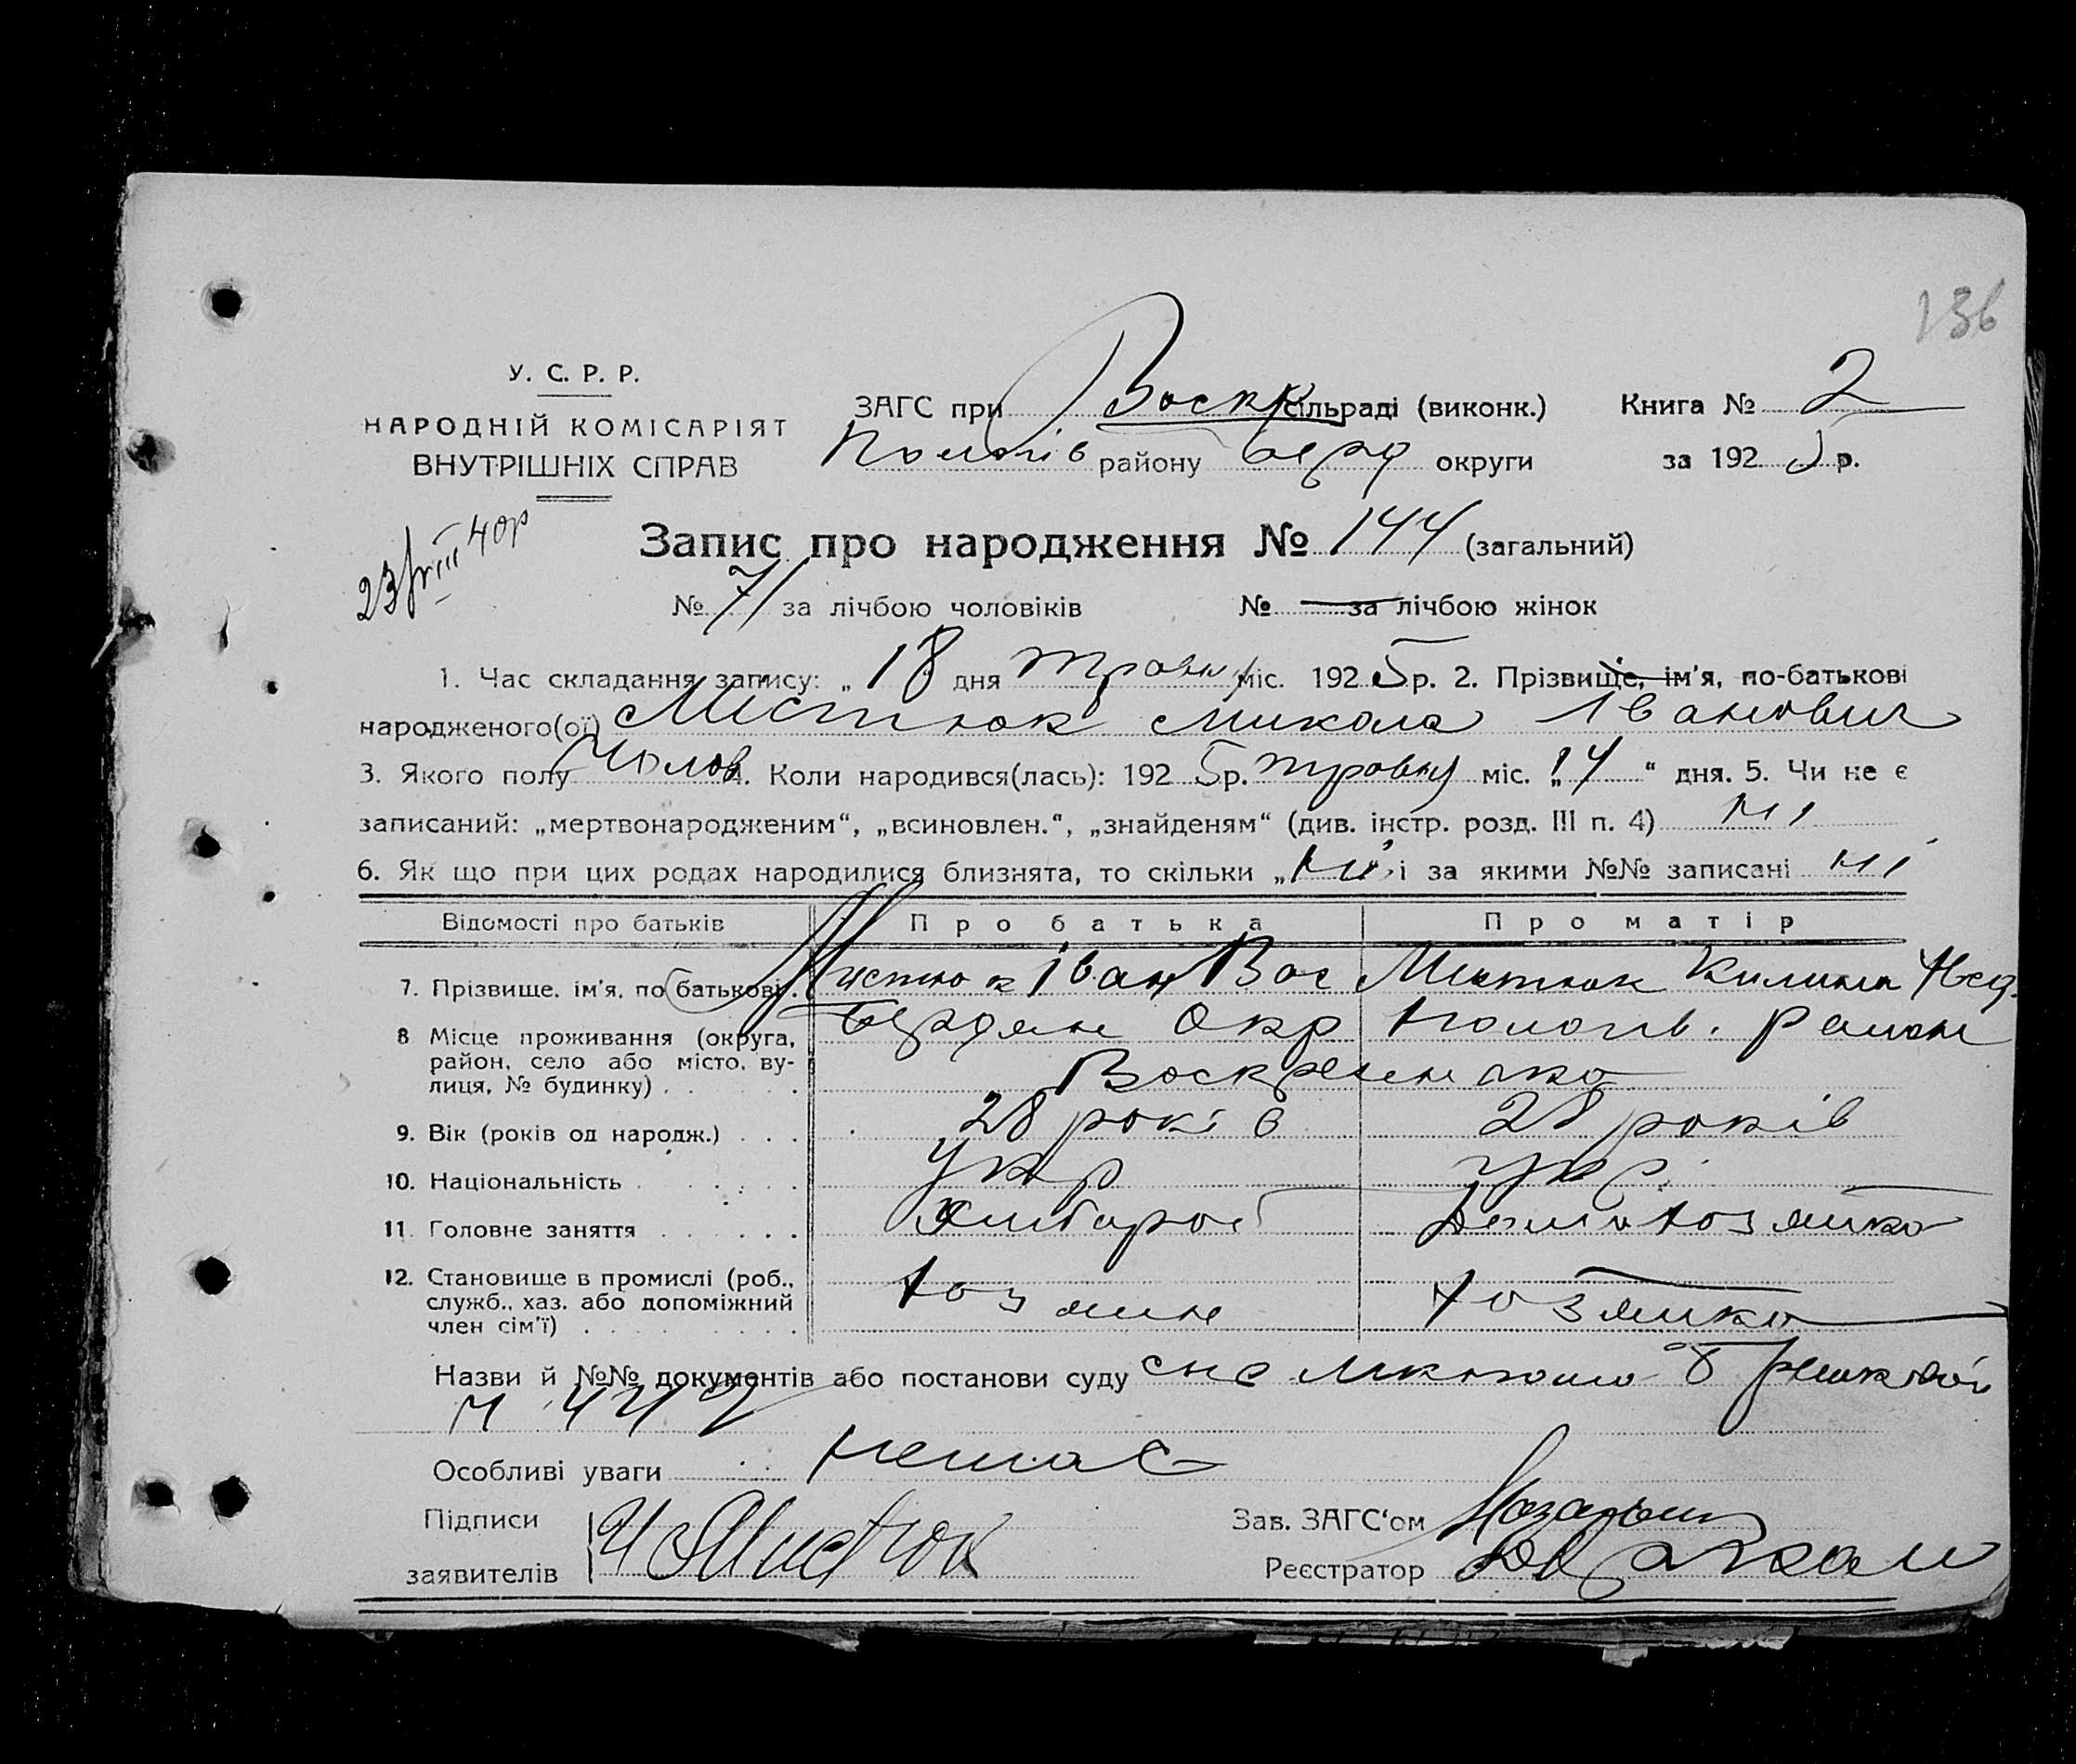 136
У. С. Р. Р.
НАРОДНІЙ КОМІСАРІЯТ
ВНУТРІШНІХ СПРАВ
ЗАГС при Воскр сільраді (виконк.) Книга № 2
Пологів району Берд округи за 1925 р.
23/VIII 40р
Запис про народження № 144 (загальний)
№ 71 за лічбою чоловіків № — за лічбою жінок
1. Час складання запису: „18 дня травня міс. 1925 р. 2. Прізвище, ім'я, по-батькові
народженого(ої) Мистюк Микола Іванович
3. Якого полу Чолов 4. Коли народився(лась): 1925 р. травня міс. „14“ дня. 5. Чи не є
записаний: „мертвонародженим“, „всиновлен.“, „знайденям“ (див. інстр. розд. III п. 4) ні
6. Як що при цих родах народилися близнята, то скільки „ні“ і за якими №№ записані ні
Відомості про батьків Про батька Про матір
7. Прізвище, ім'я, по батькові. Мистюк Іван Вас Мистюк Килина
8 Місце проживання (округа, Бердян Окр Пологів. Район
район, село або місто, ву-
лиця, № будинку) . . Воскресенка
9. Вік (років од народж.) . . . 28 років 28 років
10. Національність . . . . . Укр укр.
11. Головне заняття . . . . . . Хлібороб Домохозяйка
12. Становище в промислі (роб., хозяин хозяйка
служб., хаз. або допоміжний
член сім'ї) . . . . . . . .
Назви й №№ документів або постанови суду
Особливі уваги немає
Підписи И Мистюк Зав. ЗАГС'ом
заявителів Реєстратор